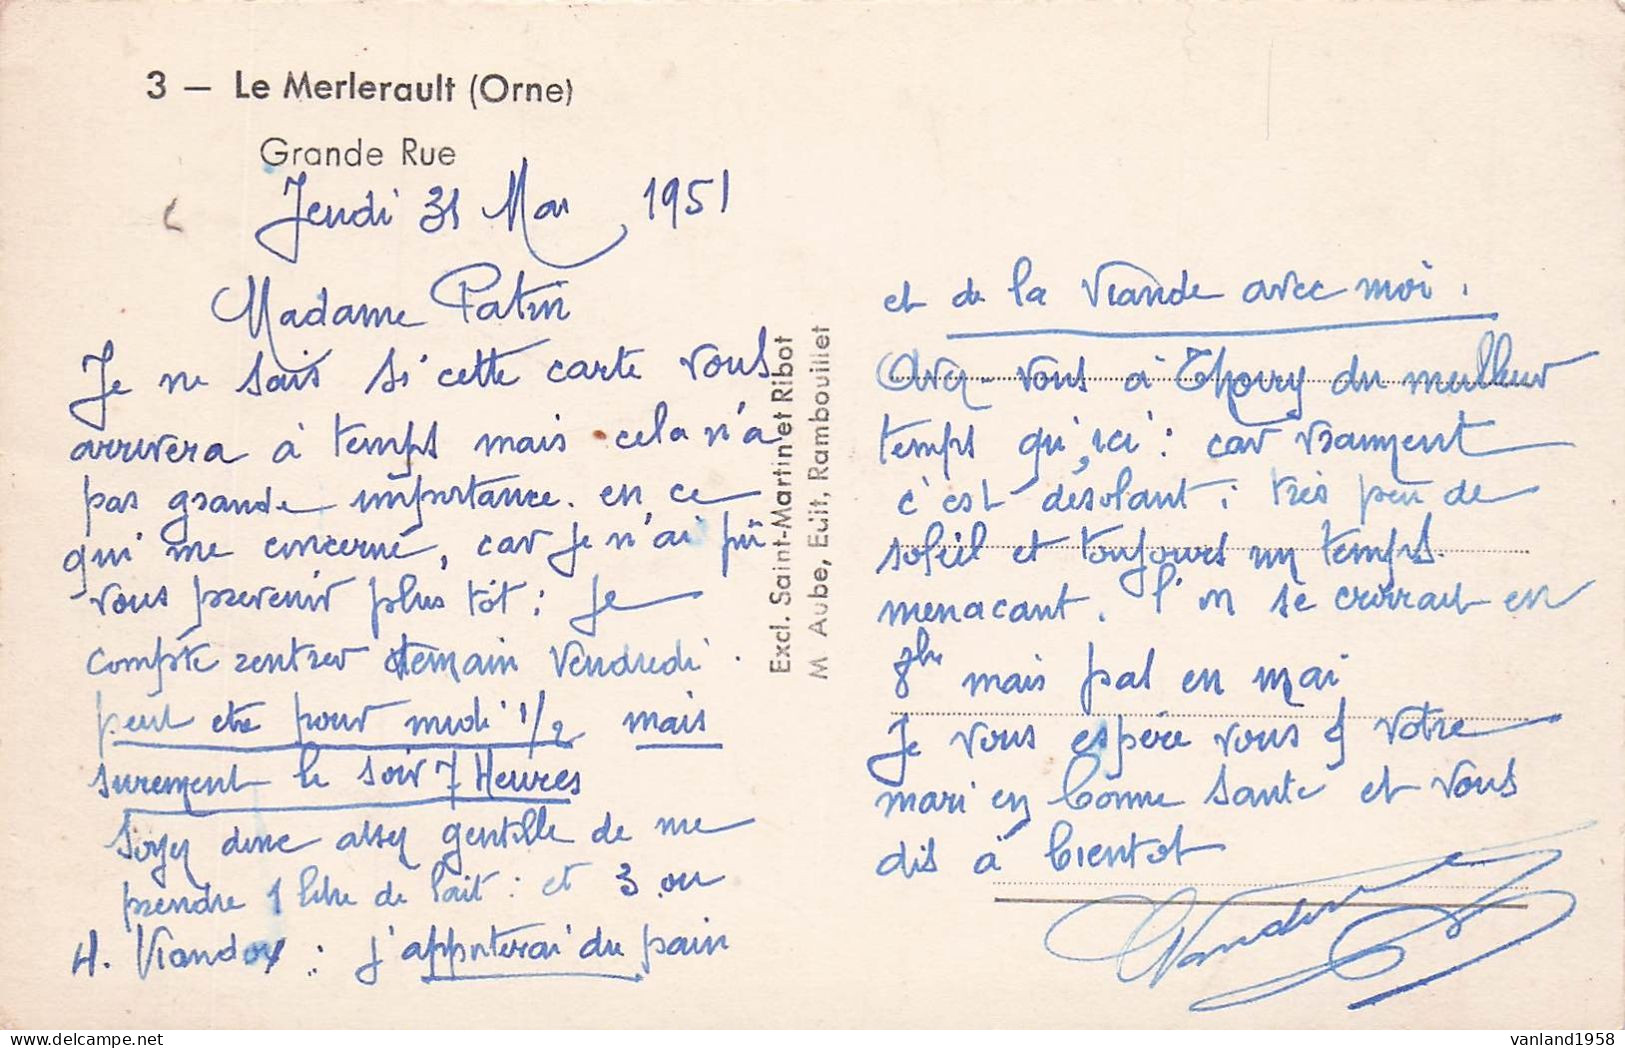 3 — Le Merlerault (Orne)
Grande Rue
Jeudi 31 Mai 1951
Madame Patrin
Je ne sais si cette carte vous
arrivera à temps mais cela n'a
pas grande importance. en ce
qui me concerne, car je n'ai pû
vous prevenir plus tôt : Je
compte rentrer demain Vendredi.
peut etre pour midi 1/2 mais
surement le soir 7 Heures
Soyez donc assez gentille de me
prendre 1 litre de lait : et 3 ou
4. Viandox : j'apporterai du pain
Excl. Saint-Martin et Ribot
M Aube, Edit, Rambouillet
et de la viande avec moi.
Avez-vous à Thoiry du meilleur
temps qu'ici : car vraiment
c'est desolant ; très peu de
soleil et toujours un temps
menacant. l'on se croirait en
9bre mais pas en mai
Je vous espère vous & votre
mari en bonne sante et vous
dis à bientot
vanland1958